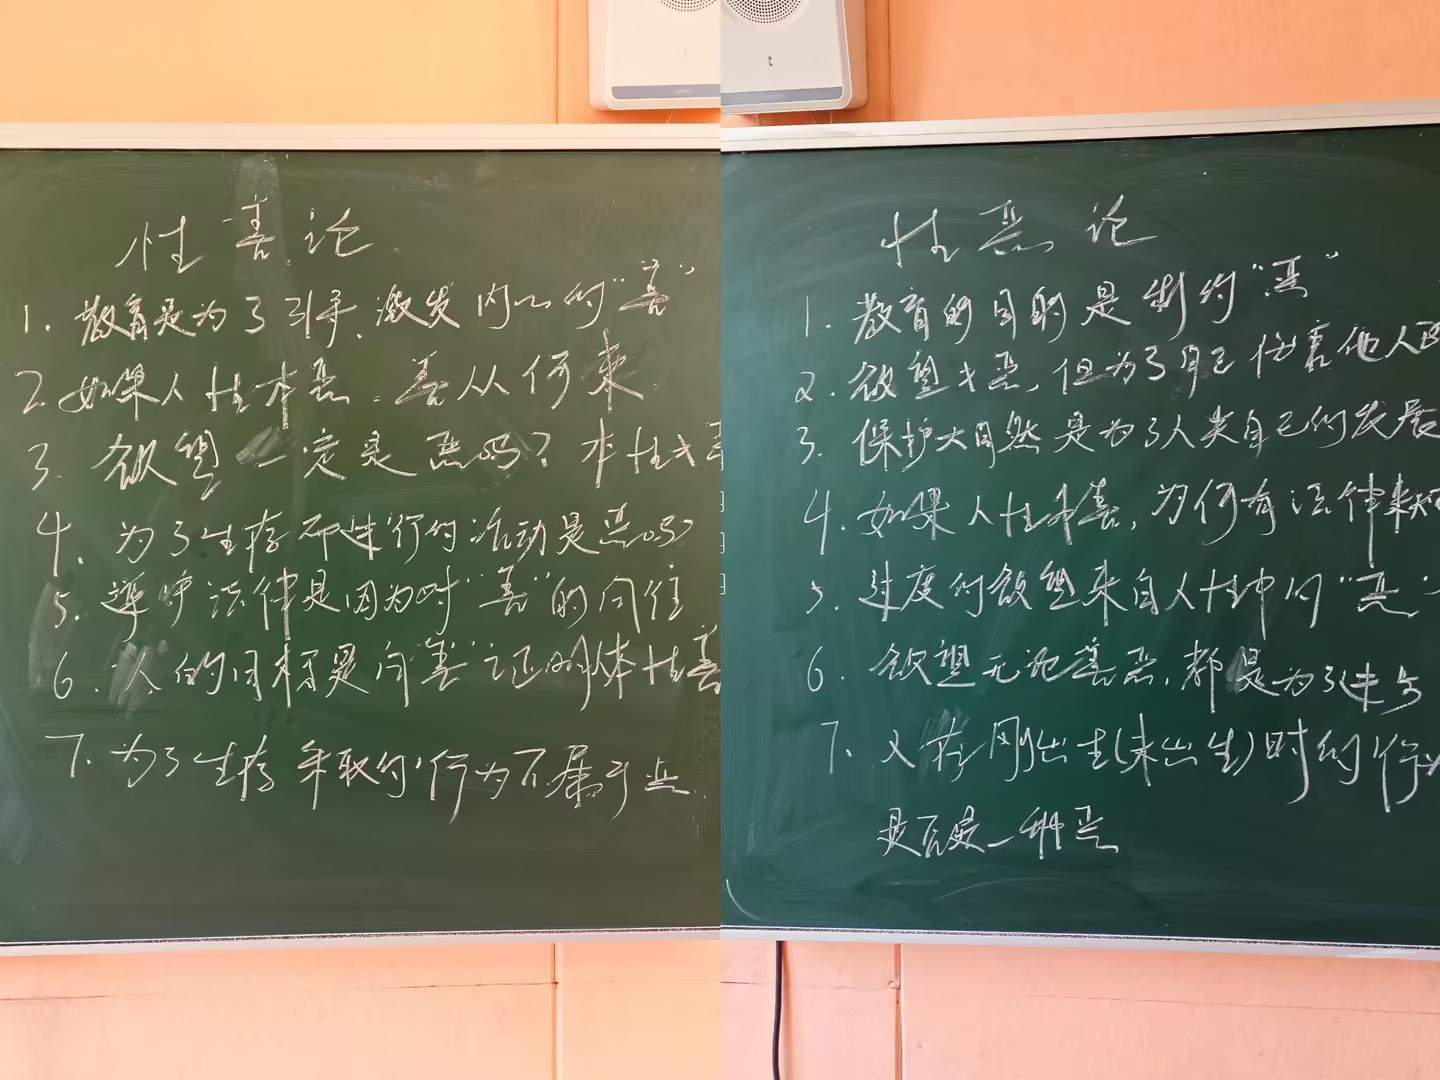 性善论
1. 教育是为了引导、激发内心的“善”
2. 如果人性本恶.善从何来
3. 欲望一定是恶吗？本性
4. 为了生存而进行的活动是恶吗?
5. 遵守法律是因为对“善”的向往
6. 人的目标是向“善”证明本性善
7. 为了生存采取的行为不属于恶
性恶论
1. 教育的目的是制约“恶”
2. 欲望≠恶,但为了自己伤害他人
3. 保护大自然是为了人类自己的发展
4. 如果人性本善,为何有法律来
5. 过度的欲望来自人性中的“恶”
6. 欲望无论善恶,都是为了
7. 人在刚出生(未出生)时的行为
是否是一种恶